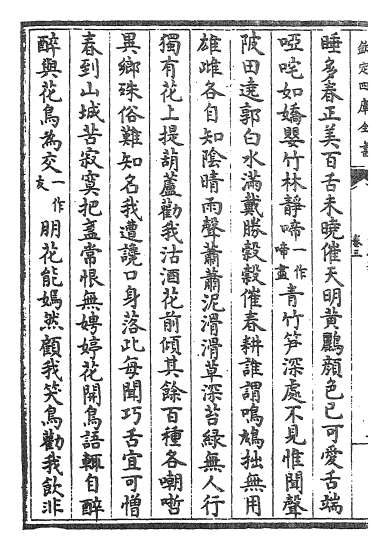 欽定四庫全書
卷三
睡多春正美百舌未曉催天明黃鸝顔色已可愛舌端
啞咤如嬌嬰竹林靜啼一作啼盡青竹笋深處不見惟聞聲
陂田遶郭白水滿戴勝榖榖催春耕誰謂鳴鳩拙無用
雄雌各自知陰晴雨聲蕭蕭泥滑滑草深苔緑無人行
獨有花上提葫蘆勸我沽酒花前傾其餘百種各嘲哳
異鄉殊俗難知名我遭讒口身落此每聞巧舌宜可憎
春到山城苦寂寞把盞常恨無娉婷花開鳥語輒自醉
醉與花鳥為交一作友朋花能嫣然顧我笑鳥勸我飲非